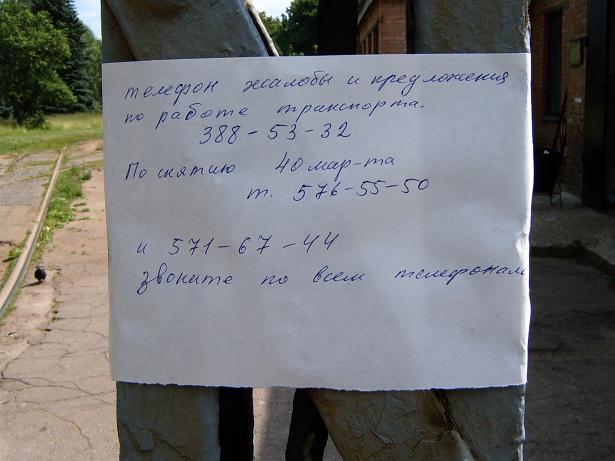 телефон жалобы и предложения
по работе транспорта.
388-53-32
По снятию 40 мар-та
т. 576-55-50
и 571-67-44
звоните по всем телефонам